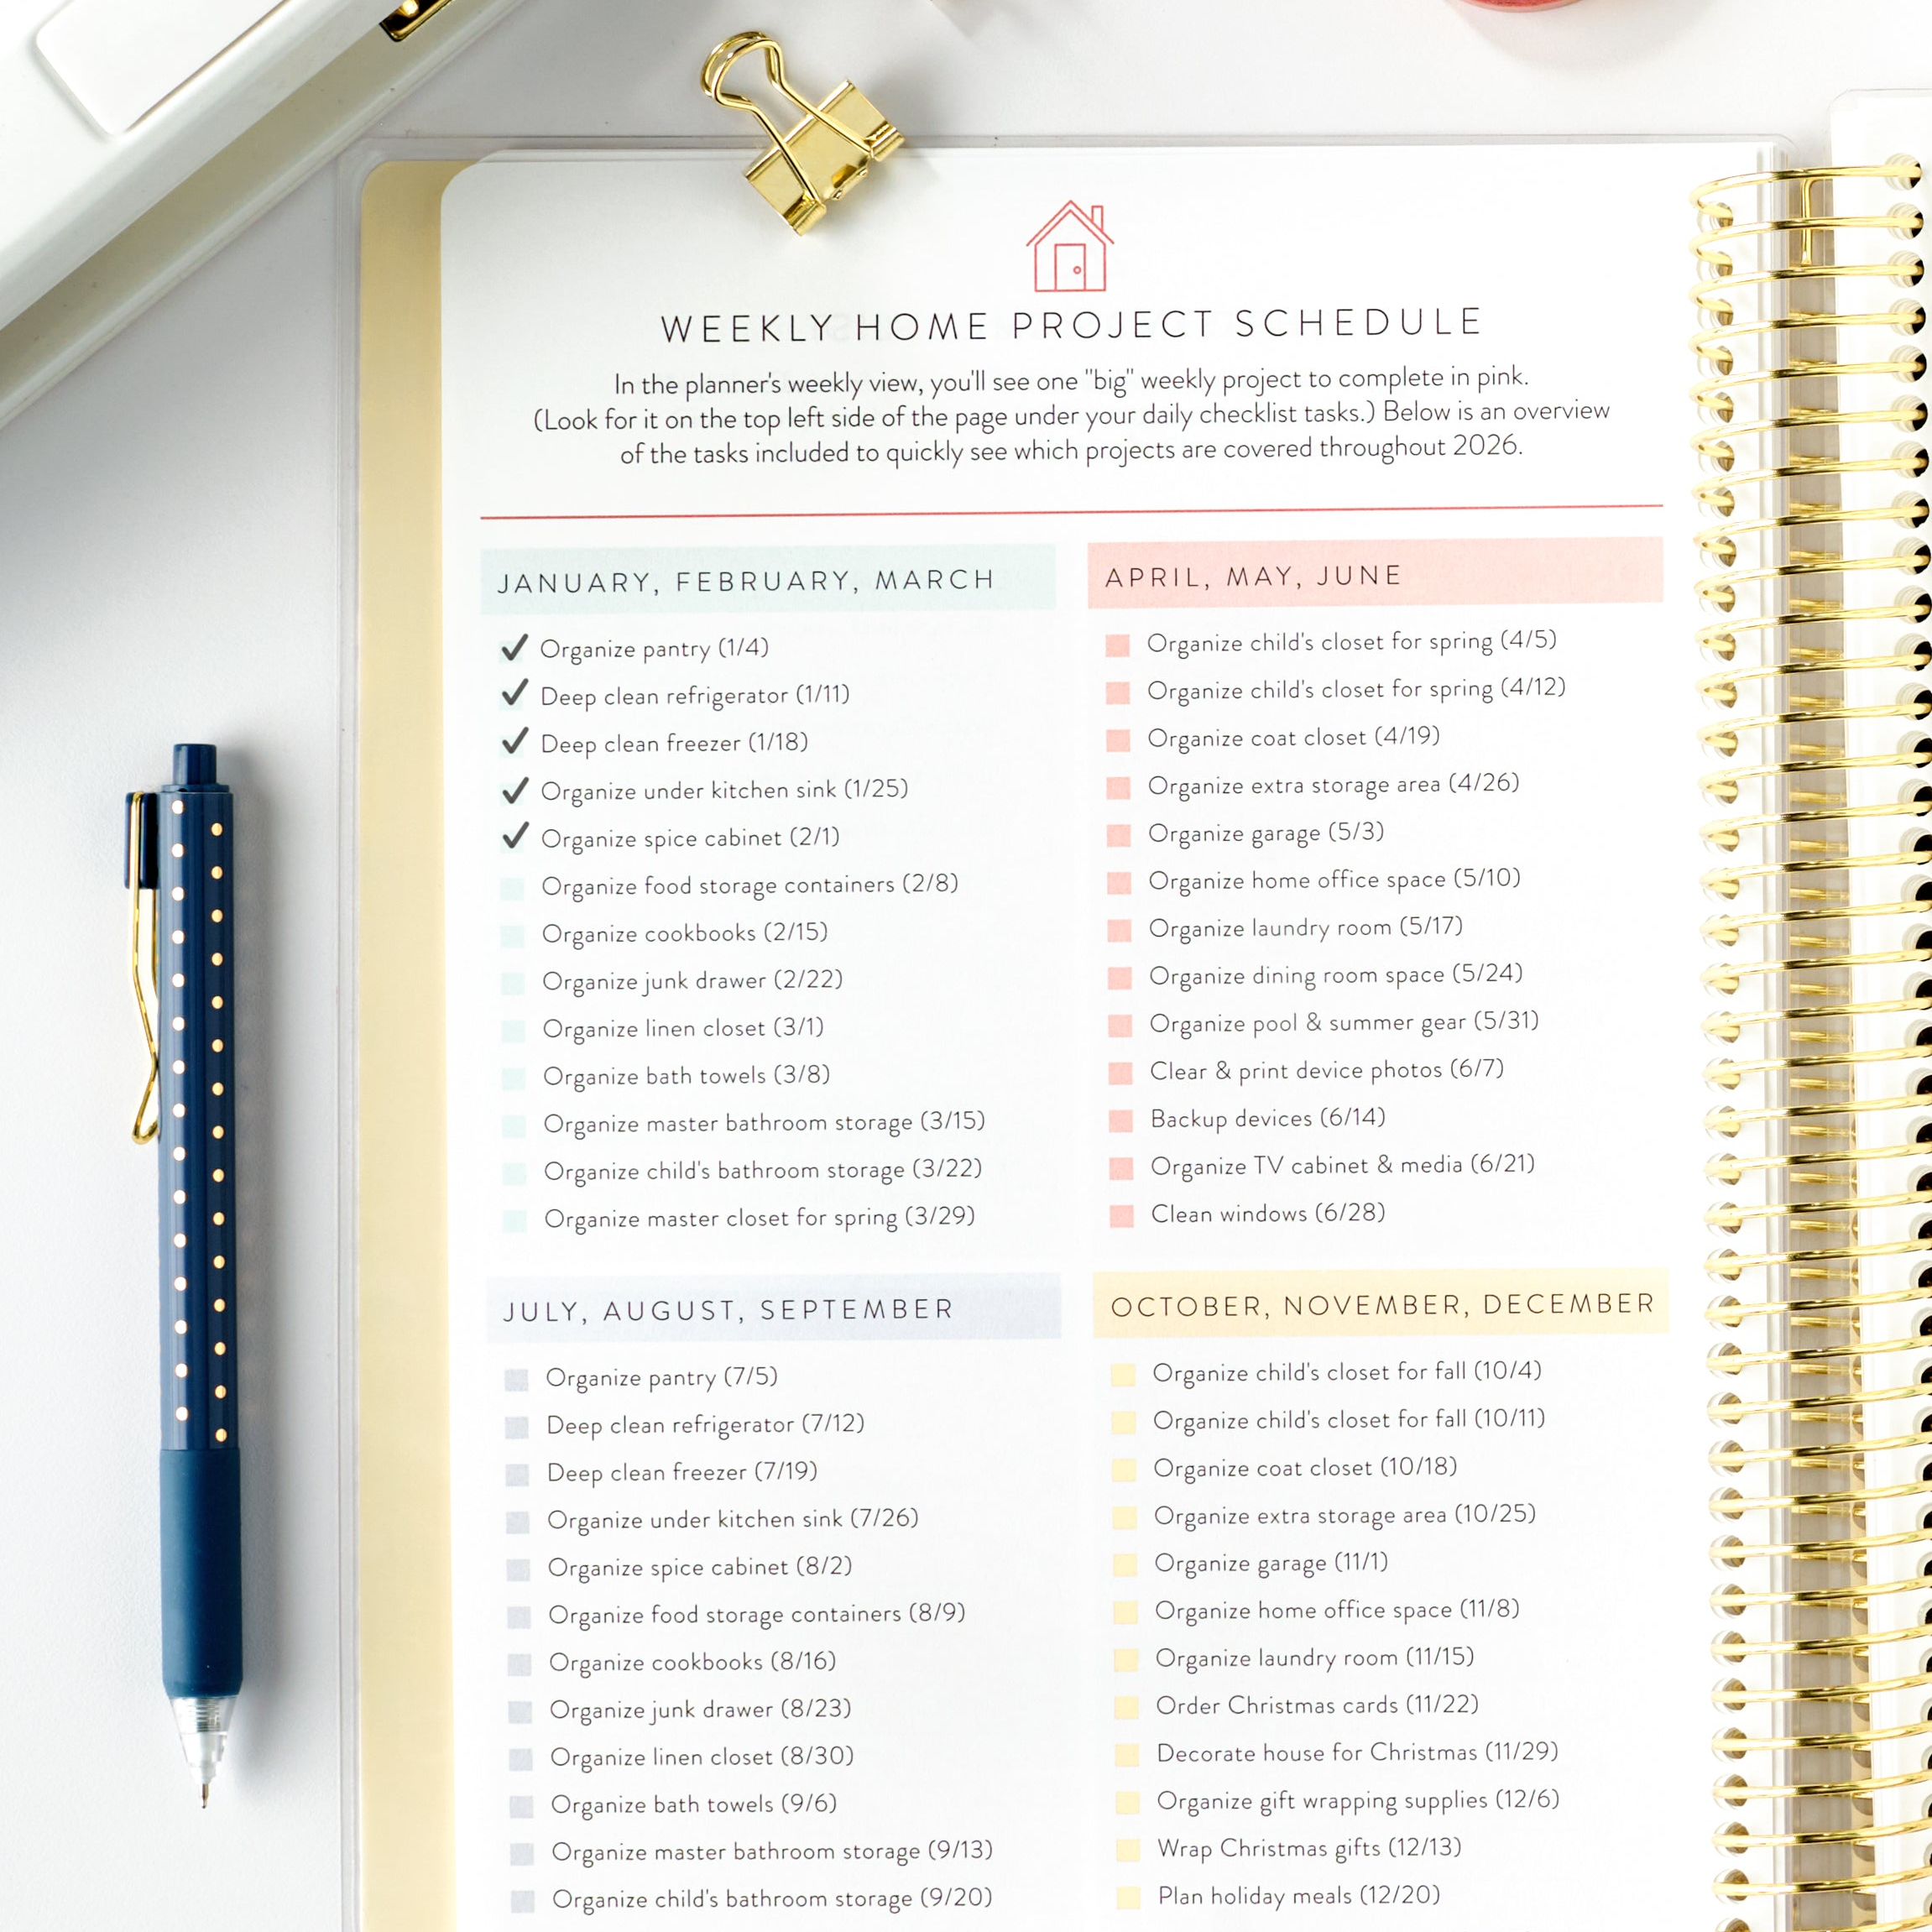 WEEKLY HOME PROJECT SCHEDULE
In the planner's weekly view, you'll see one "big" weekly project to complete in pink.
(Look for it on the top left side of the page under your daily checklist tasks.) Below is an overview
of the tasks included to quickly see which projects are covered throughout 2026.
JANUARY, FEBRUARY, MARCH
Organize pantry (1/4)
Deep clean refrigerator (1/11)
Deep clean freezer (1/18)
Organize under kitchen sink (1/25)
Organize spice cabinet (2/1)
Organize food storage containers (2/8)
Organize cookbooks (2/15)
Organize junk drawer (2/22)
Organize linen closet (3/1)
Organize bath towels (3/8)
Organize master bathroom storage (3/15)
Organize child's bathroom storage (3/22)
Organize master closet for spring (3/29)
APRIL, MAY, JUNE
Organize child's closet for spring (4/5)
Organize child's closet for spring (4/12)
Organize coat closet (4/19)
Organize extra storage area (4/26)
Organize garage (5/3)
Organize home office space (5/10)
Organize laundry room (5/17)
Organize dining room space (5/24)
Organize pool & summer gear (5/31)
Clear & print device photos (6/7)
Backup devices (6/14)
Organize TV cabinet & media (6/21)
Clean windows (6/28)
JULY, AUGUST, SEPTEMBER
Organize pantry (7/5)
Deep clean refrigerator (7/12)
Deep clean freezer (7/19)
Organize under kitchen sink (7/26)
Organize spice cabinet (8/2)
Organize food storage containers (8/9)
Organize cookbooks (8/16)
Organize junk drawer (8/23)
Organize linen closet (8/30)
Organize bath towels (9/6)
Organize master bathroom storage (9/13)
Organize child's bathroom storage (9/20)
OCTOBER, NOVEMBER, DECEMBER
Organize child's closet for fall (10/4)
Organize child's closet for fall (10/11)
Organize coat closet (10/18)
Organize extra storage area (10/25)
Organize garage (11/1)
Organize home office space (11/8)
Organize laundry room (11/15)
Order Christmas cards (11/22)
Decorate house for Christmas (11/29)
Organize gift wrapping supplies (12/6)
Wrap Christmas gifts (12/13)
Plan holiday meals (12/20)